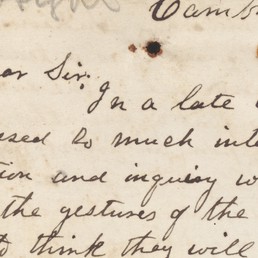 Camb
ar Sir;
In a late
used so much inte
tion and inquiry w
the gestures of the
to think they will